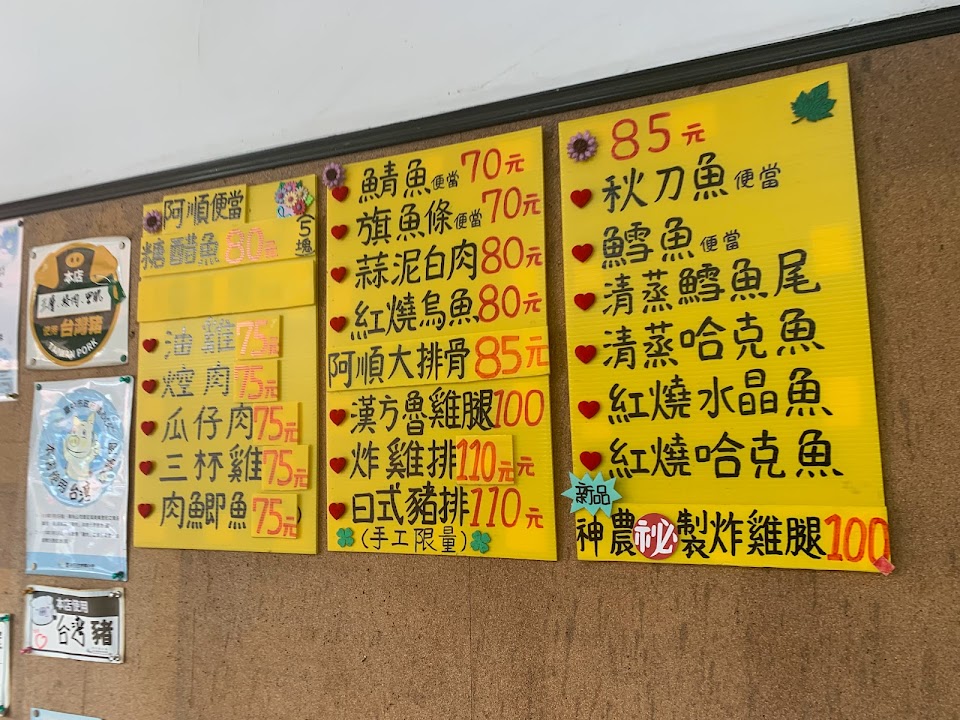 阿順便當
糖醋魚80元
(5塊
油雞75元
焢肉75元
瓜仔肉75元
三杯雞75元
肉鯽魚75元
鯖魚便當70元
旗魚條便當70元
蒜泥白肉80元
紅燒烏魚80元
阿順大排骨85元
漢方魯雞腿100
炸雞排110元元
日式豬排110元
(手工限量)
85元
秋刀魚便當
鱈魚便當
清蒸鱈魚尾
清蒸哈克魚
紅燒水晶魚
紅燒哈克魚
新品
神農祕製炸雞腿100
本店
使用台灣豬
TAIWAN PORK
本店使用
台灣豬